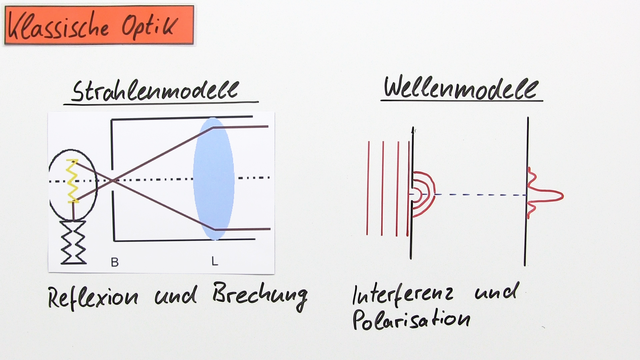 Klassische Optik
Strahlenmodell
Wellenmodell
B
L
Reflexion und Brechung
Interferenz und
Polarisation